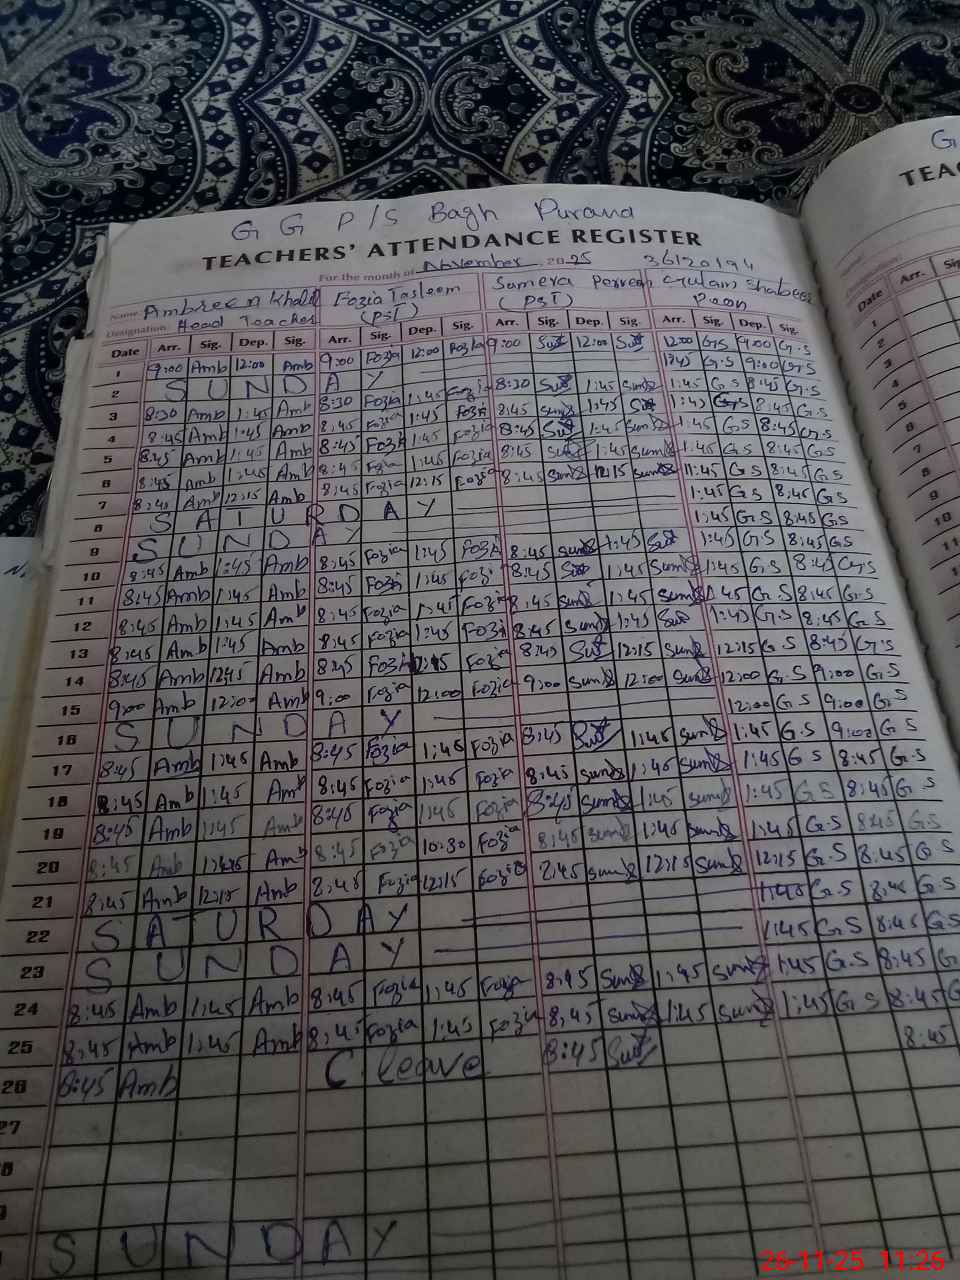 G G P/S Bagh Purana
TEACHERS' ATTENDANCE REGISTER
For the month of November 2025 36120194
Name Ambreen Khalid Fozia Tasleem Sumera Perveen Gulam Shabeer
Designation Head Teacher (PST) (PST) Paon
Date Arr. Sig. Dep. Sig. Arr. Sig. Dep. Sig. Arr. Sig. Dep. Sig. Arr. Sig. Dep. Sig.
1 9:00 Amb 12:00 Amb 9:00 Fozia 12:00 Fozia 9:00 12:00 12:00 G.S 9:00 G.S
2 SUNDAY 1:45 G.S 9:00 G.S
3 8:30 Amb 1:45 Amb 8:30 Fozia 1:45 Fozia 8:30 1:45 1:45 G.S 8:45 G.S
4 8:45 Amb 1:45 Amb 8:45 Fozia 1:45 Fozia 8:45 1:45 1:45 G.S 8:45 G.S
5 8:45 Amb 1:45 Amb 8:45 Fozia 1:45 Fozia 8:45 1:45 1:45 G.S 8:45 G.S
6 8:45 Amb 1:45 Amb 8:45 Fozia 1:45 Fozia 8:45 1:45 1:45 G.S 8:45 G.S
7 8:45 Amb 12:15 Amb 8:45 Fozia 12:15 Fozia 8:45 12:15 11:45 G.S 8:45 G.S
8 SATURDAY 1:45 G.S 8:45 G.S
9 SUNDAY 1:45 G.S 8:45 G.S
10 8:45 Amb 1:45 Amb 8:45 Fozia 1:45 Fozia 8:45 1:45 1:45 G.S 8:45 G.S
11 8:45 Amb 1:45 Amb 8:45 Fozia 1:45 Fozia 8:45 1:45 1:45 G.S 8:45 G.S
12 8:45 Amb 1:45 Amb 8:45 Fozia 1:45 Fozia 8:45 1:45 1:45 G.S 8:45 G.S
13 8:45 Amb 1:45 Amb 8:45 Fozia 1:45 Fozia 8:45 1:45 1:45 G.S 8:45 G.S
14 8:45 Amb 12:15 Amb 8:45 Fozia 12:15 Fozia 8:45 12:15 12:15 G.S 8:45 G.S
15 9:00 Amb 12:00 Amb 9:00 Fozia 12:00 Fozia 9:00 12:00 12:00 G.S 9:00 G.S
16 SUNDAY 12:00 G.S 9:00 G.S
17 8:45 Amb 1:45 Amb 8:45 Fozia 1:45 Fozia 8:45 1:45 1:45 G.S 9:00 G.S
18 8:45 Amb 1:45 Amb 8:45 Fozia 1:45 Fozia 8:45 1:45 1:45 G.S 8:45 G.S
19 8:45 Amb 1:45 Amb 8:45 Fozia 1:45 Fozia 8:45 1:45 1:45 G.S 8:45 G.S
20 8:45 Amb 1:45 Amb 8:45 Fozia 10:30 Fozia 8:45 1:45 1:45 G.S 8:45 G.S
21 8:45 Amb 12:15 Amb 8:45 Fozia 12:15 Fozia 8:45 12:15 12:15 G.S 8:45 G.S
22 SATURDAY 1:45 G.S 8:45 G.S
23 SUNDAY 1:45 G.S 8:45 G.S
24 8:45 Amb 1:45 Amb 8:45 Fozia 1:45 Fozia 8:45 1:45 1:45 G.S 8:45 G
25 8:45 Amb 1:45 Amb 8:45 Fozia 1:45 Fozia 8:45 1:45 1:45 G.S 8:45 G
26 8:45 Amb C. leave 8:45 8:45
27
SUNDAY
G
TEAC
Date Arr. Sig
1
2
3
4
5
6
7
8
9
10
11
26-11-25 11:26